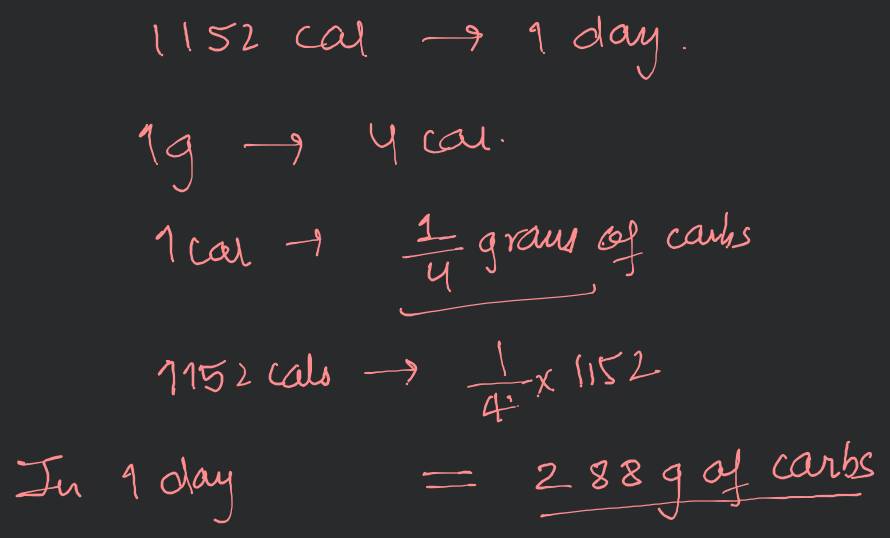 1152 cal → 1 day.
1g → 4 cal.
1 cal → 1/4 grams of carbs
1152 cals → 1/4 x 1152
In 1 day = 288 g of carbs